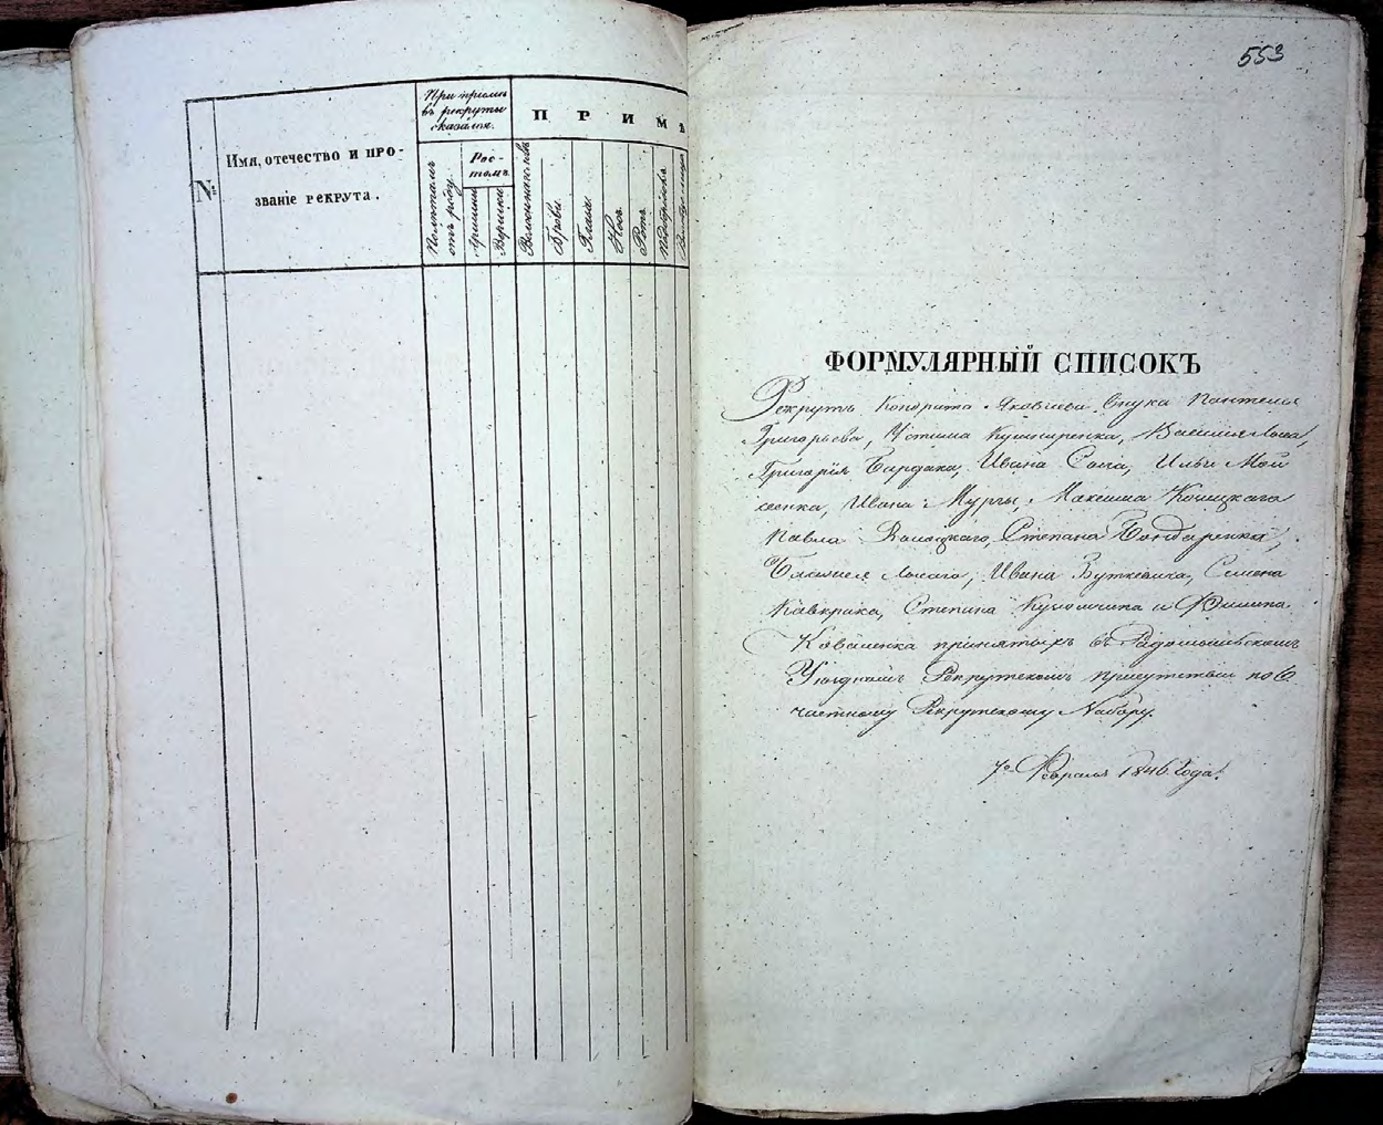 №
Имя, отечество и про-
званіе рекрута.
При пріемѣ
въ рекруты
сказался.
Полѣтамъ
отъ роду.
Рос-
томъ.
Аршины
Вершки
П Р И М Ѣ
Брови.
Глаза.
Носъ.
Ротъ.
Подбородокъ
553
ФОРМУЛЯРНЫЙ СПИСОКЪ
Рекрутъ Кондрата Яковлева Внука Пантелея
Григорьева, Устима Кушниренка, Василія
Григорія Бардака, Ивана Сома, Ильи Мой
сеенка, Ивана Мурги, Максима
Павла Степана Бондаренка,
Ивана Семена
Степана и Филипа
Коваленка принятыхъ въ Радомысльскомъ
Уѣздномъ Рекрутскомъ присутствіи по 6
частному Рекрутскому Набору.
7го Февраля 1846 года.